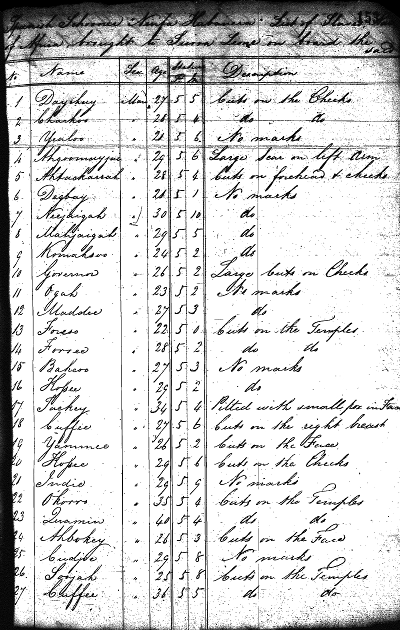 Spanish Schooner Ninfa Habanera: List of Slaves
of Africa brought to Sierra Leone on board the
said
No Name Sex Age Stature Description
F In
1 Man 27 5 5 Cuts on the Cheeks
2 " 28 5 4 do do
3 " 28 5 6 No marks
4 " 29 5 6 Large scar on left arm
5 " 28 5 4 Cuts on forehead & cheeks
6 Dagbay " 28 5 1 No marks
7 " 30 5 10 do
8 " 29 5 5 do
9 " 24 5 2 do
10 Governor " 26 5 2 Large Cuts on Cheeks
11 Ogah " 23 5 2 No marks
12 Maddee " 27 5 3 do
13 " 22 5 0 Cuts on the Temples
14 " 28 5 2 do do
15 " 27 5 3 No marks
16 Hopee " 29 5 2 do
17 " 34 5 4 Pitted with small pox in Face
18 Cuffee " 27 5 6 Cuts on the right breast
19 Yammee " 26 5 2 Cuts on the Face
20 Hopee " 29 5 6 Cuts on the Cheeks
21 Indie " 29 5 9 No marks
22 Okorro " 35 5 4 Cuts on the Temples
23 Quamin " 40 5 4 do do
24 Ahbokey " 26 5 3 Cuts on the Face
25 Cudjoe " 29 5 8 No marks
26 " 25 5 8 Cuts on the Temples
27 Cuffee " 36 5 5 do do